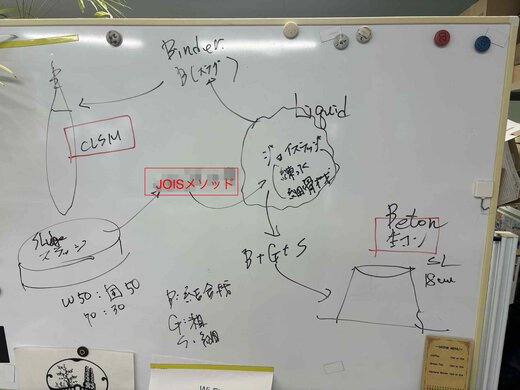 Binder
B(スラグ)
Liquid
CLSM
JOISメソッド
ジョイズスラッジ
練り水
細骨材
Sludge
スラッジ
Beton
生コン
SL
18cm
B+G+S
W50:固50
70:30
B:結合材
G:粗
S:細